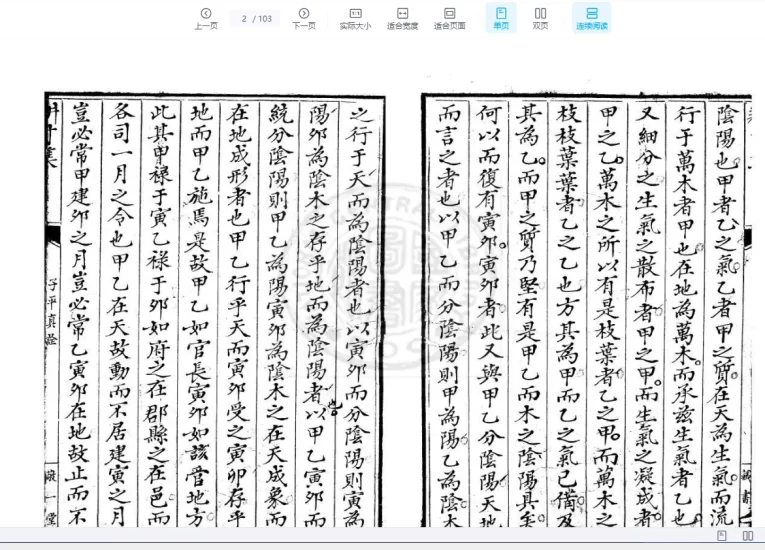 上一页
2 / 103
下一页
实际大小
适合宽度
适合页面
单页
双页
连续阅读
陰陽也甲者乙之氣乙者甲之質在天為生氣而流
行于萬木者甲也在地為萬木而承茲生氣者乙也
又細分之生氣之散布者甲之甲而生氣之凝成者
甲之乙萬木之所以有是枝葉者乙之甲而萬木之
枝枝葉葉者乙之乙也方其為甲而乙之氣已備及
其為乙而甲之質乃堅有是甲乙而木之陰陽具矣
何以而復有寅夘寅夘者此又與甲乙分陰陽天地
而言之者也以甲乙而分陰陽則甲為陽乙為陰木
之行于天而為陰陽者也以寅夘而分陰陽則寅為
陽夘為陰木之存乎地而為陰陽者也以甲乙寅夘而
統分陰陽則甲乙為陽寅夘為陰木之在天成象而
在地成形者也甲乙行乎天而寅夘受之寅卯存乎
地而甲乙施馬是故甲乙如官長寅夘如該管地方
此其甲祿于寅乙祿于夘如府之在郡縣之在邑而
各司一月之令也甲乙在天故動而不居建寅之月
豈必常甲建夘之月豈必常乙寅夘在地故止而不
子平真詮
一堂